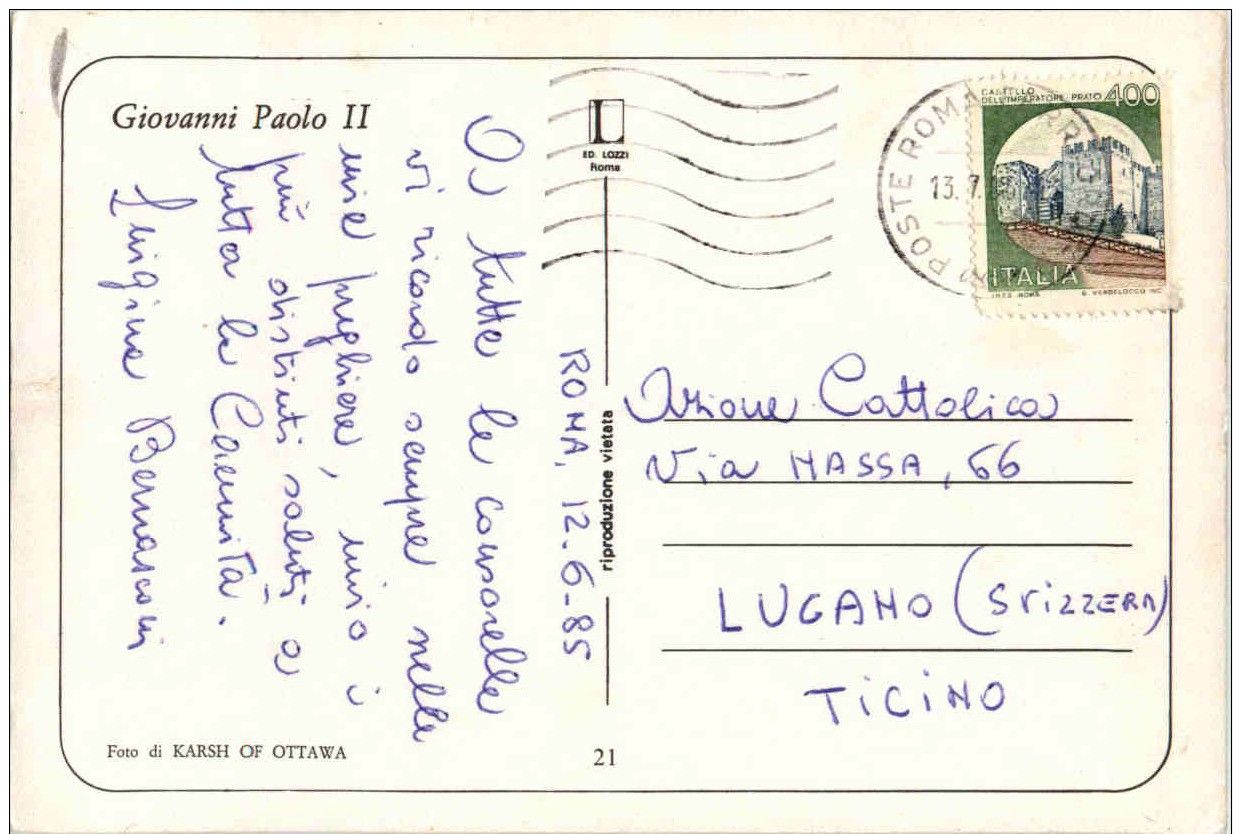 Giovanni Paolo II
A tutte le consorelle
vi ricordo sempre nelle
mie preghiere, invio i
più distinti saluti a
tutta la Comunità.
Luigina Bernasconi
ROMA, 12-6-85
Foto di KARSH OF OTTAWA
L
ED. LOZZI
Roma
riproduzione vietata
21
POSTE ROMA
13.7.
CASTELLO
DELL'IMPERATORE-PRATO 400
ITALIA
I.P.Z.S. ROMA
Azione Cattolica
Via MASSA, 66
LUGANO (SVIZZERA)
TICINO